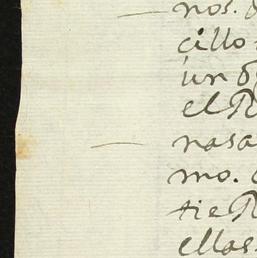 nos.
cillo
un
el
nasa
mo.
tie
ellas